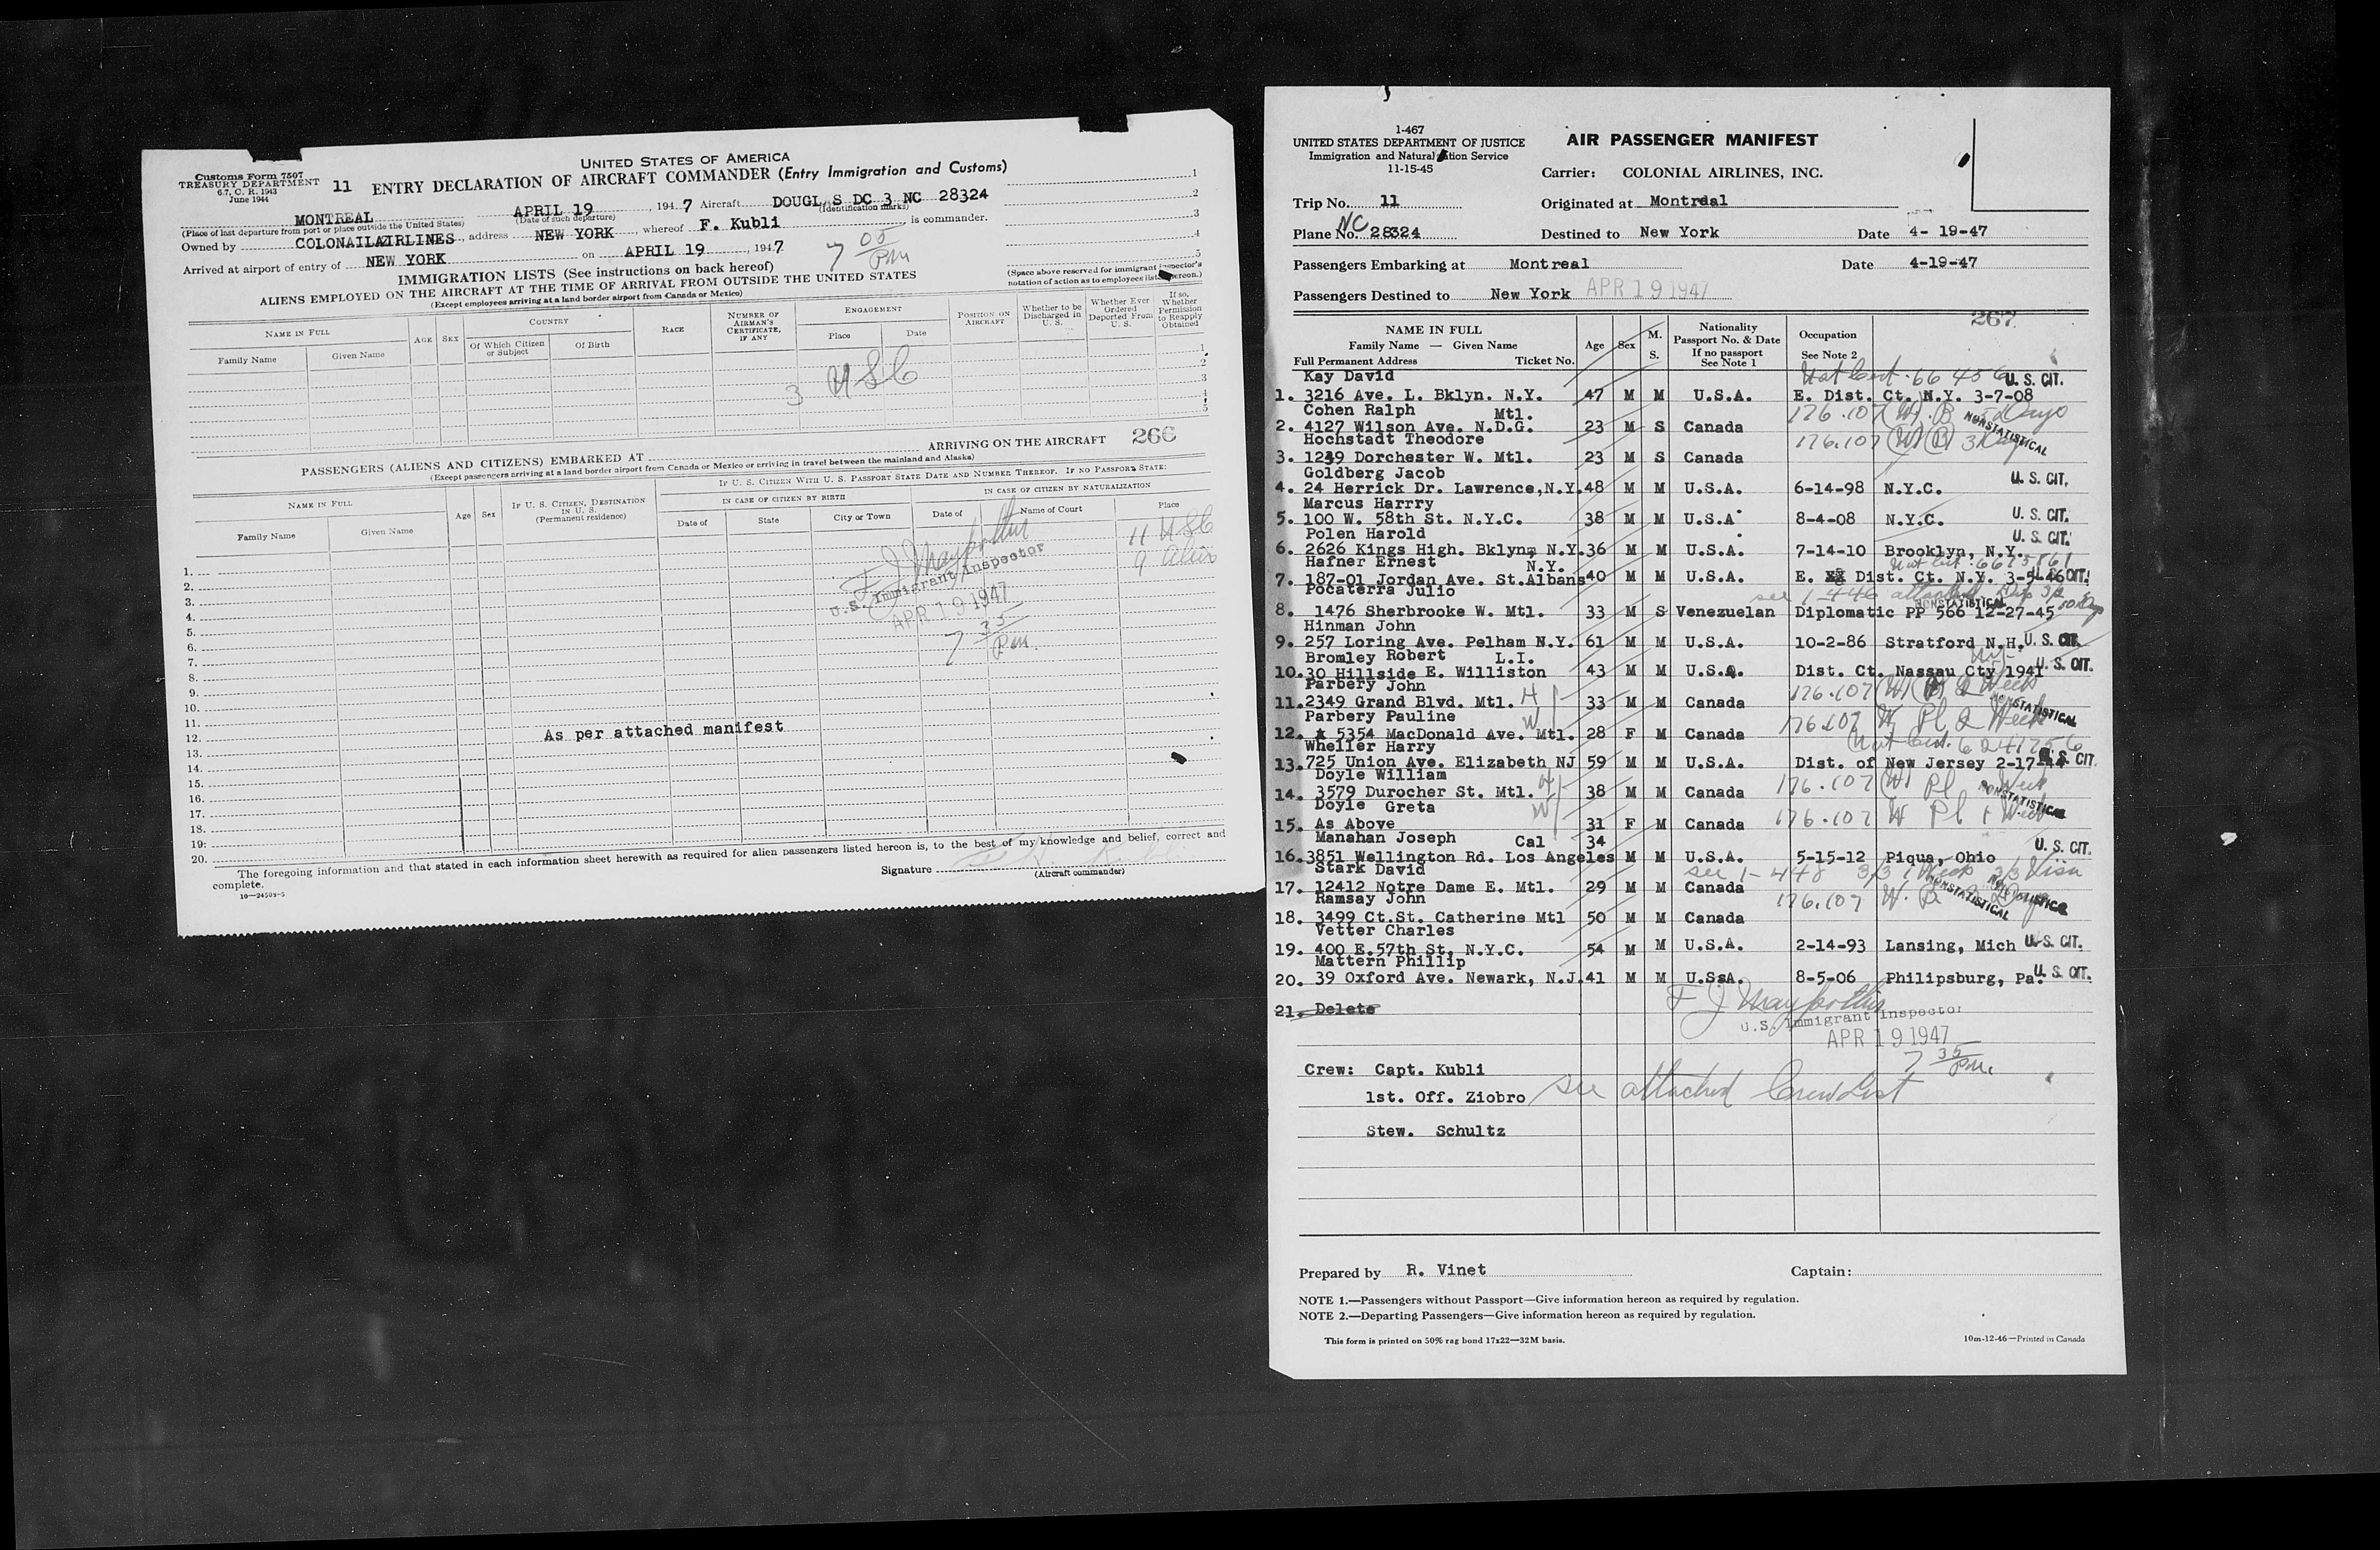 Customs Form 7507
TREASURY DEPARTMENT
6.7, C. R. 1943
June 1944
11
UNITED STATES OF AMERICA
ENTRY DECLARATION OF AIRCRAFT COMMANDER (Entry Immigration and Customs)
MONTREAL APRIL 19, 1947 Aircraft DOUGL S DC 3 NC 28324
(Place of last departure from port or place outside the United States) (Date of such departure) (Identification marks)
Owned by COLONAILAZIRLINES, address NEW YORK, whereof F. Kubli is commander.
Arrived at airport of entry of NEW YORK on APRIL 19, 1947
7 05 Pm
1
2
3
4
5
(Space above reserved for immigrant inspector's
notation of action as to employees listed hereon.)
IMMIGRATION LISTS (See instructions on back hereof)
ALIENS EMPLOYED ON THE AIRCRAFT AT THE TIME OF ARRIVAL FROM OUTSIDE THE UNITED STATES
(Except employees arriving at a land border airport from Canada or Mexico)
NAME IN FULL
Family Name Given Name
AGE SEX
COUNTRY
Of Which Citizen or Subject Of Birth
RACE
NUMBER OF AIRMAN'S CERTIFICATE, IF ANY
ENGAGEMENT
Place Date
POSITION ON AIRCRAFT
Whether to be Discharged in U. S.
Whether Ever Ordered Deported From U. S.
If so, Whether Permission to Reapply Obtained
1
2
3
4
5
3 USC
PASSENGERS (ALIENS AND CITIZENS) EMBARKED AT ARRIVING ON THE AIRCRAFT 266
(Except passengers arriving at a land border airport from Canada or Mexico or arriving in travel between the mainland and Alaska)
NAME IN FULL
Family Name Given Name
Age Sex
IF U. S. CITIZEN, DESTINATION IN U. S. (Permanent residence)
IF U. S. CITIZEN WITH U. S. PASSPORT STATE DATE AND NUMBER THEREOF. IF NO PASSPORT STATE:
IN CASE OF CITIZEN BY BIRTH IN CASE OF CITIZEN BY NATURALIZATION
Date of State City or Town Date of Name of Court Place
11 USC
9 Alien
U.S. Immigrant Inspector
APR 19 1947
7 35 Pm.
1.
2.
3.
4.
5.
6.
7.
8.
9.
10.
11.
12. As per attached manifest
13.
14.
15.
16.
17.
18.
19.
20.
The foregoing information and that stated in each information sheet herewith as required for alien passengers listed hereon is, to the best of my knowledge and belief, correct and
complete.
Signature
(Aircraft commander)
10—24503-5
1-467
UNITED STATES DEPARTMENT OF JUSTICE
Immigration and Naturalization Service
11-15-45
AIR PASSENGER MANIFEST
Carrier: COLONIAL AIRLINES, INC.
Trip No. 11 Originated at Montreal
Plane No. NC 28324 Destined to New York Date 4- 19-47
Passengers Embarking at Montreal Date 4-19-47
Passengers Destined to New York APR 19 1947
267
NAME IN FULL
Family Name — Given Name
Full Permanent Address Ticket No.
Age Sex M. S.
Nationality
Passport No. & Date
If no passport
See Note 1
Occupation
See Note 2
Kay David U. S. CIT.
1. 3216 Ave. L. Bklyn. N.Y. 47 M M U.S.A. E. Dist. Ct. N.Y. 3-7-08
Cohen Ralph Mtl. 176.107 (W) B Days
2. 4127 Wilson Ave. N.D.G. 23 M S Canada NONSTATISTICAL
Hochstadt Theodore 176.107 (W) (B) 3
3. 1249 Dorchester W. Mtl. 23 M S Canada
Goldberg Jacob U. S. CIT.
4. 24 Herrick Dr. Lawrence,N.Y. 48 M M U.S.A. 6-14-98 N.Y.C.
Marcus Harrry U. S. CIT.
5. 100 W. 58th St. N.Y.C. 38 M M U.S.A. 8-4-08 N.Y.C.
Polen Harold U. S. CIT.
6. 2626 Kings High. Bklyn, N.Y. 36 M M U.S.A. 7-14-10 Brooklyn, N.Y.
Hafner Ernest N.Y.
7. 187-01 Jordan Ave. St.Albans 40 M M U.S.A. E. XX Dist. Ct. N.Y. 3-5-46 CIT.
Pocaterra Julio see 1-446 attached NONSTATISTICAL
8. 1476 Sherbrooke W. Mtl. 33 M S Venezuelan Diplomatic PP 566 12-27-45
Hinman John
9. 257 Loring Ave. Pelham N.Y. 61 M M U.S.A. 10-2-86 Stratford N.H. U. S. CIT.
Bromley Robert L.I.
10. 30 Hillside E. Williston 43 M M U.S.A. Dist. Ct. Nassau Cty 1941 U. S. CIT.
Parbery John H 176.107 (W) 2 Week
11. 2349 Grand Blvd. Mtl. 33 M M Canada NONSTATISTICAL
Parbery Pauline W 176.107 W Pl 2 Week
12. 5354 MacDonald Ave. Mtl. 28 F M Canada
Wheller Harry
13. 725 Union Ave. Elizabeth NJ 59 M M U.S.A. Dist. of New Jersey 2-17-44 U. S. CIT.
Doyle William H 176.107 (W) Pl Week
14. 3579 Durocher St. Mtl. 38 M M Canada NONSTATISTICAL
Doyle Greta W 176.107 W Pl 1 Week
15. As Above 31 F M Canada
Manahan Joseph Cal 34 U. S. CIT.
16. 3851 Wellington Rd. Los Angeles M M U.S.A. 5-15-12 Piqua, Ohio
Stark David see 1-448 3/3 Visa
17. 12412 Notre Dame E. Mtl. 29 M M Canada NONSTATISTICAL
Ramsay John 176.107 W. B.
18. 3499 Ct.St. Catherine Mtl 50 M M Canada
Vetter Charles
19. 400 E.57th St. N.Y.C. 54 M M U.S.A. 2-14-93 Lansing, Mich U. S. CIT.
Mattern Phillip
20. 39 Oxford Ave. Newark, N.J. 41 M M U.SsA. 8-5-06 Philipsburg, Pa. U. S. CIT.
21. Delete
U.S. Immigrant Inspector
APR 19 1947
7 35 Pm.
Crew: Capt. Kubli
1st. Off. Ziobro see attached Crew List
Stew. Schultz
Prepared by R. Vinet Captain:
NOTE 1.—Passengers without Passport—Give information hereon as required by regulation.
NOTE 2.—Departing Passengers—Give information hereon as required by regulation.
This form is printed on 50% rag bond 17x22—32M basis.
10m-12-46—Printed in Canada